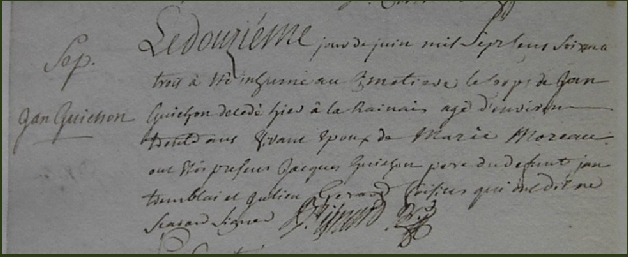 Sep.
Jan Guichon
Le douziéme jour de juin mil Sept cens Soixante
trois à été inhumé au Cimetiere le corps de Jan
Guichon decedé hier à la Rainais agé d'environ
ans vivant Epoux de Marie Moreau
ont étés presens Jacques Guichon pere du defunt jan
tremblai et Julien Gerard qui ont dit ne
Scavoir Signer